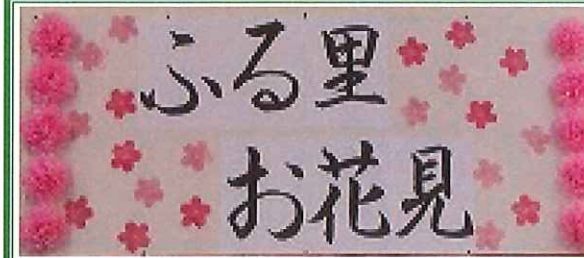 ふる里
お花見